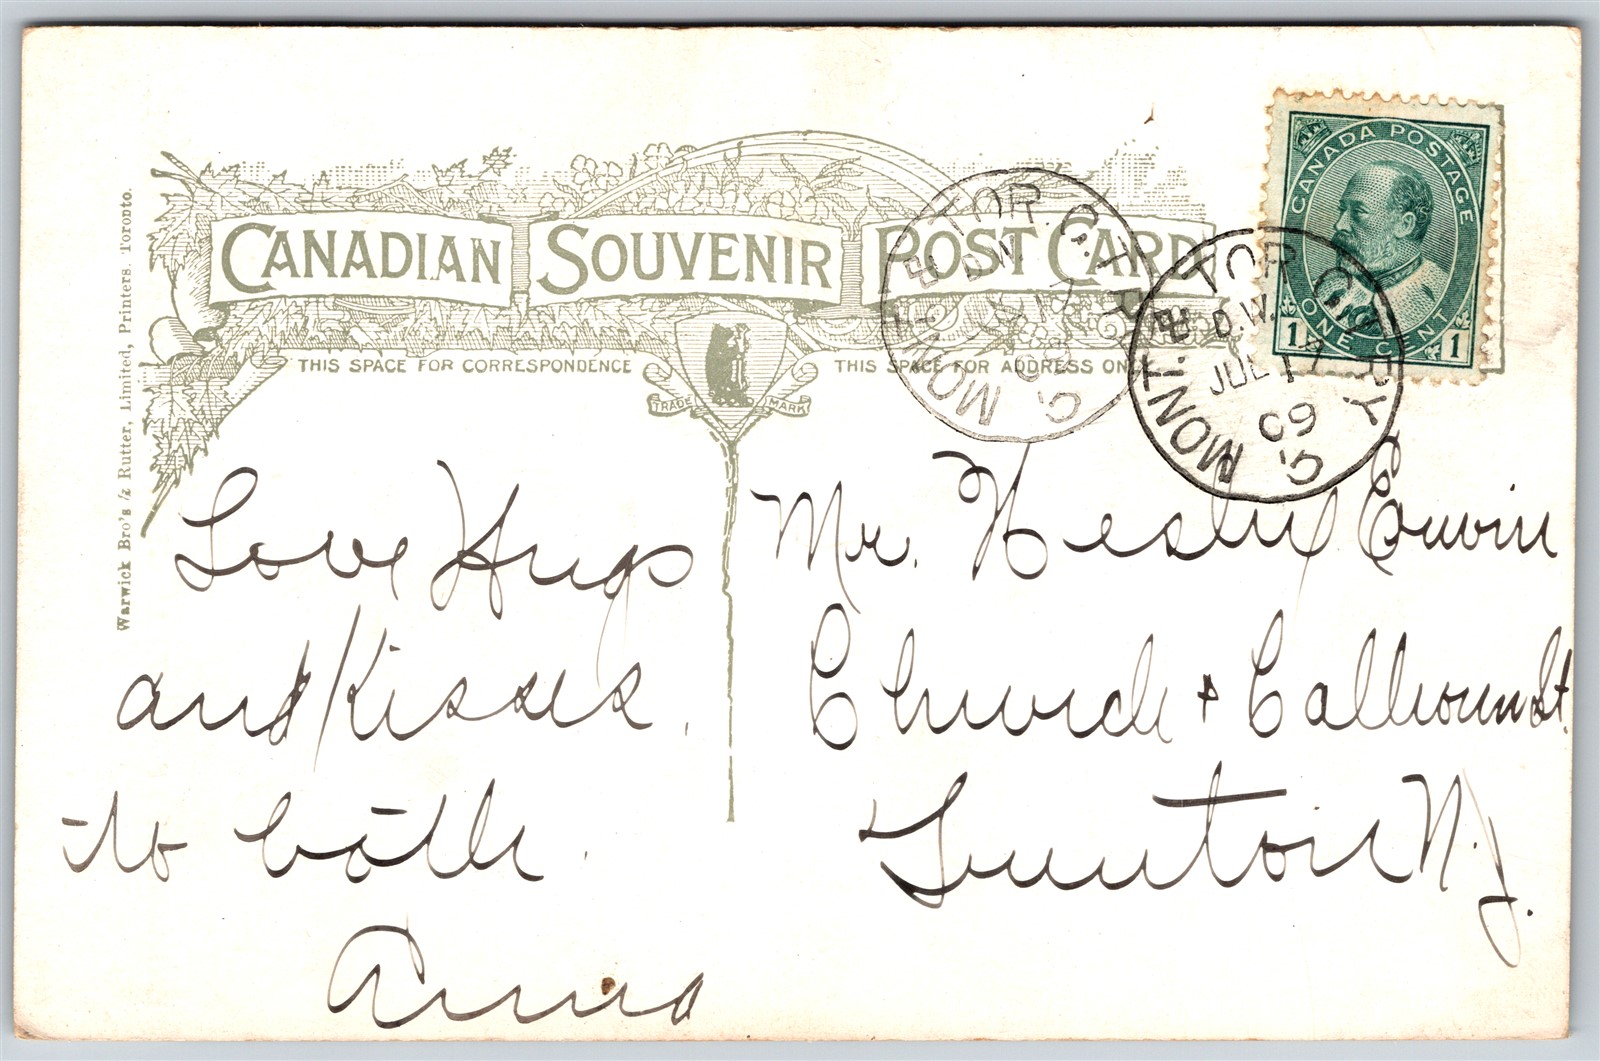 CANADIAN SOUVENIR POST CARD
THIS SPACE FOR CORRESPONDENCE
THIS SPACE FOR ADDRESS ON
TRADE MARK
Warwick Bro's & Rutter, Limited, Printers. Toronto.
CANADA POSTAGE
1 ONE CENT 1
MONT. & TOR. C.
D.W.
JUL 17
09
MONT. & TOR. G.T.RY
D.W.
JUL 17
09
Love Hugs
and Kisses.
to both.
Anna
Mr. Wesley
Church + Calhoun St.
N.J.